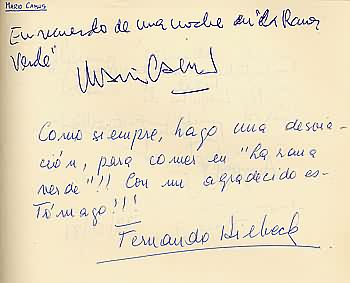 MARIO CAMUS
En recuerdo de una noche en "La Rana
Verde"
Mario Camus
Como siempre, hago una desvia-
ción, para comer en "La rana
verde"!! Con mi agradecido es-
tómago!!!
Fernando Hilbeck